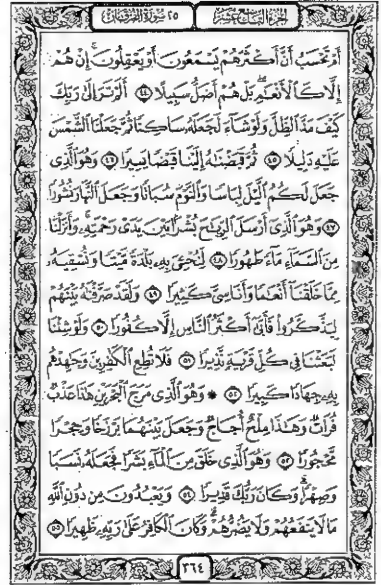 الجزء التاسع عشر ٢٥ سورة الفرقان
أَمْ تَحْسَبُ أَنَّ أَكْثَرَهُمْ يَسْمَعُونَ أَوْ يَعْقِلُونَ ۚ إِنْ هُمْ
إِلَّا كَالْأَنْعَٰمِ ۖ بَلْ هُمْ أَضَلُّ سَبِيلًا ٤٤ أَلَمْ تَرَ إِلَىٰ رَبِّكَ
كَيْفَ مَدَّ ٱلظِّلَّ وَلَوْ شَآءَ لَجَعَلَهُۥ سَاكِنًا ثُمَّ جَعَلْنَا ٱلشَّمْسَ
عَلَيْهِ دَلِيلًا ٤٥ ثُمَّ قَبَضْنَٰهُ إِلَيْنَا قَبْضًا يَسِيرًا ٤٦ وَهُوَ ٱلَّذِى
جَعَلَ لَكُمُ ٱلَّيْلَ لِبَاسًا وَٱلنَّوْمَ سُبَاتًا وَجَعَلَ ٱلنَّهَارَ نُشُورًا
٤٧ وَهُوَ ٱلَّذِىٓ أَرْسَلَ ٱلرِّيَٰحَ بُشْرًۢا بَيْنَ يَدَىْ رَحْمَتِهِۦ ۚ وَأَنزَلْنَا
مِنَ ٱلسَّمَآءِ مَآءً طَهُورًا ٤٨ لِّنُحْـِۧىَ بِهِۦ بَلْدَةً مَّيْتًا وَنُسْقِيَهُۥ
مِمَّا خَلَقْنَآ أَنْعَٰمًا وَأَنَاسِىَّ كَثِيرًا ٤٩ وَلَقَدْ صَرَّفْنَٰهُ بَيْنَهُمْ
لِيَذَّكَّرُوا۟ فَأَبَىٰٓ أَكْثَرُ ٱلنَّاسِ إِلَّا كُفُورًا ٥٠ وَلَوْ شِئْنَا
لَبَعَثْنَا فِى كُلِّ قَرْيَةٍ نَّذِيرًا ٥١ فَلَا تُطِعِ ٱلْكَٰفِرِينَ وَجَٰهِدْهُم
بِهِۦ جِهَادًا كَبِيرًا ٥٢ ۞ وَهُوَ ٱلَّذِى مَرَجَ ٱلْبَحْرَيْنِ هَٰذَا عَذْبٌ
فُرَاتٌ وَهَٰذَا مِلْحٌ أُجَاجٌ وَجَعَلَ بَيْنَهُمَا بَرْزَخًا وَحِجْرًا
مَّحْجُورًا ٥٣ وَهُوَ ٱلَّذِى خَلَقَ مِنَ ٱلْمَآءِ بَشَرًا فَجَعَلَهُۥ نَسَبًا
وَصِهْرًا ۗ وَكَانَ رَبُّكَ قَدِيرًا ٥٤ وَيَعْبُدُونَ مِن دُونِ ٱللَّهِ
مَا لَا يَنفَعُهُمْ وَلَا يَضُرُّهُمْ ۗ وَكَانَ ٱلْكَافِرُ عَلَىٰ رَبِّهِۦ ظَهِيرًا ٥٥
٣٦٤